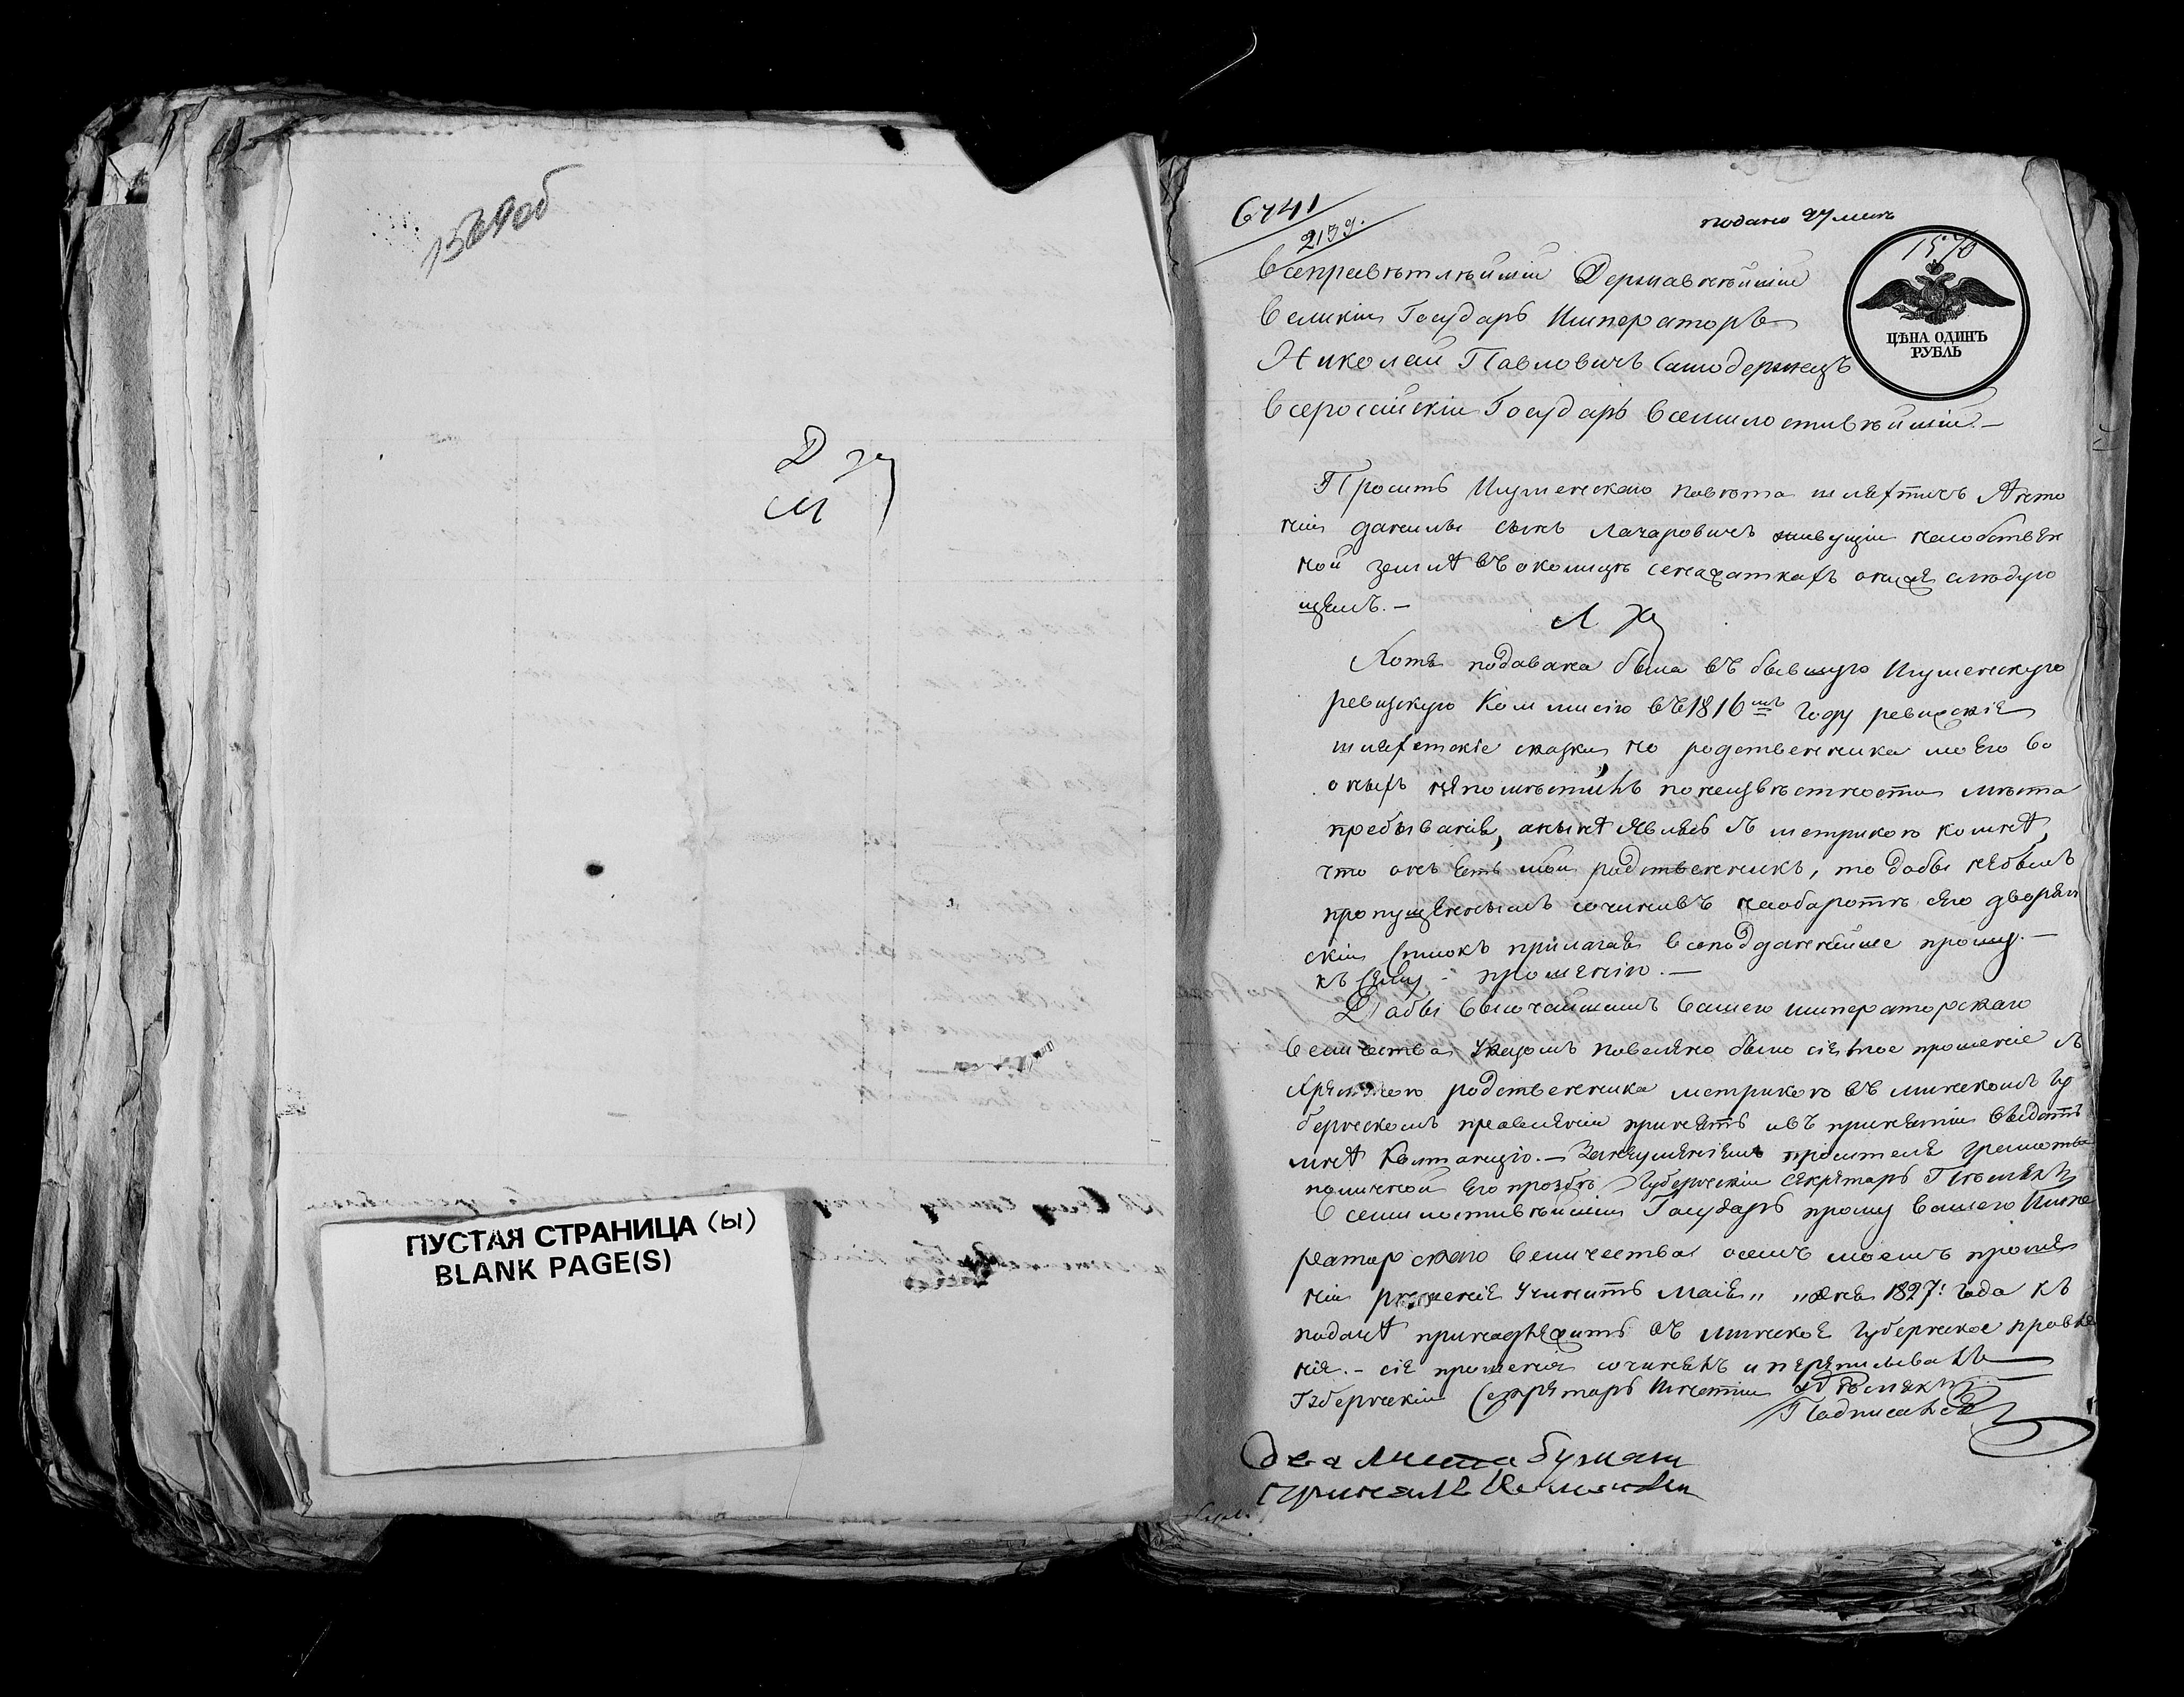 1569об
ПУСТАЯ СТРАНИЦА (ы)
BLANK PAGE(S)
6741
2139.
подано 27 маія
1570
ЦѢНА ОДИНЪ
РУБЛЬ
Всепресвѣтлѣйшій Державнѣйшій
Великій Государь Императоръ
Николай Павловичъ Самодержецъ
Всеросійскій Государь Всемилостивѣйшій. —
Проситъ Игуменскаго повѣта шляхтичъ Анто
ній данилы сынъ Лазаровичъ живущій насобствен
ной землѣ въ околицѣ
щемъ. —
Хотя подавана была въ бывшую Игуменскую
ревизскую Коммисію въ 1816мъ году ревизскіе
шляхетскіе сказки, но родственника моего во
оныхъ непомѣстилъ понеизвѣстности мѣста
пребыванія, анынѣ являсь съ метрикою комнѣ,
что онъ есть мой родственникъ, то дабы небылъ
пропущеннымъ сочинивъ наоборотѣ его дворян
скій списокъ прилагая всеподданнейше прошу. —
къ сему прошенію. —
Дабы высочайшимъ вашего императорскаго
величества указомъ повелено было сіе мое прошеніе съ
родственника метрикою въ минскомъ гу
бернскомъ правленіи принять ивъ принятіи выдать
мнѣ Квитанцію. — Занеуменіемъ просителя грамоты
поличной его прозбѣ Губернскій Секретарь
Всемилостивѣйшій Государь прошу вашего Импе
раторскаго величества осемъ моемъ проше
ніи рѣшеніе учинить Маія „ „ дня 1827: года къ
подачѣ принадлежитъ въ минское губернское правле
ніе. — сіе прошеніе сочинялъ и переписывалъ
Губернскій Секретарь Игнатій
Подписался
два листа бумаги